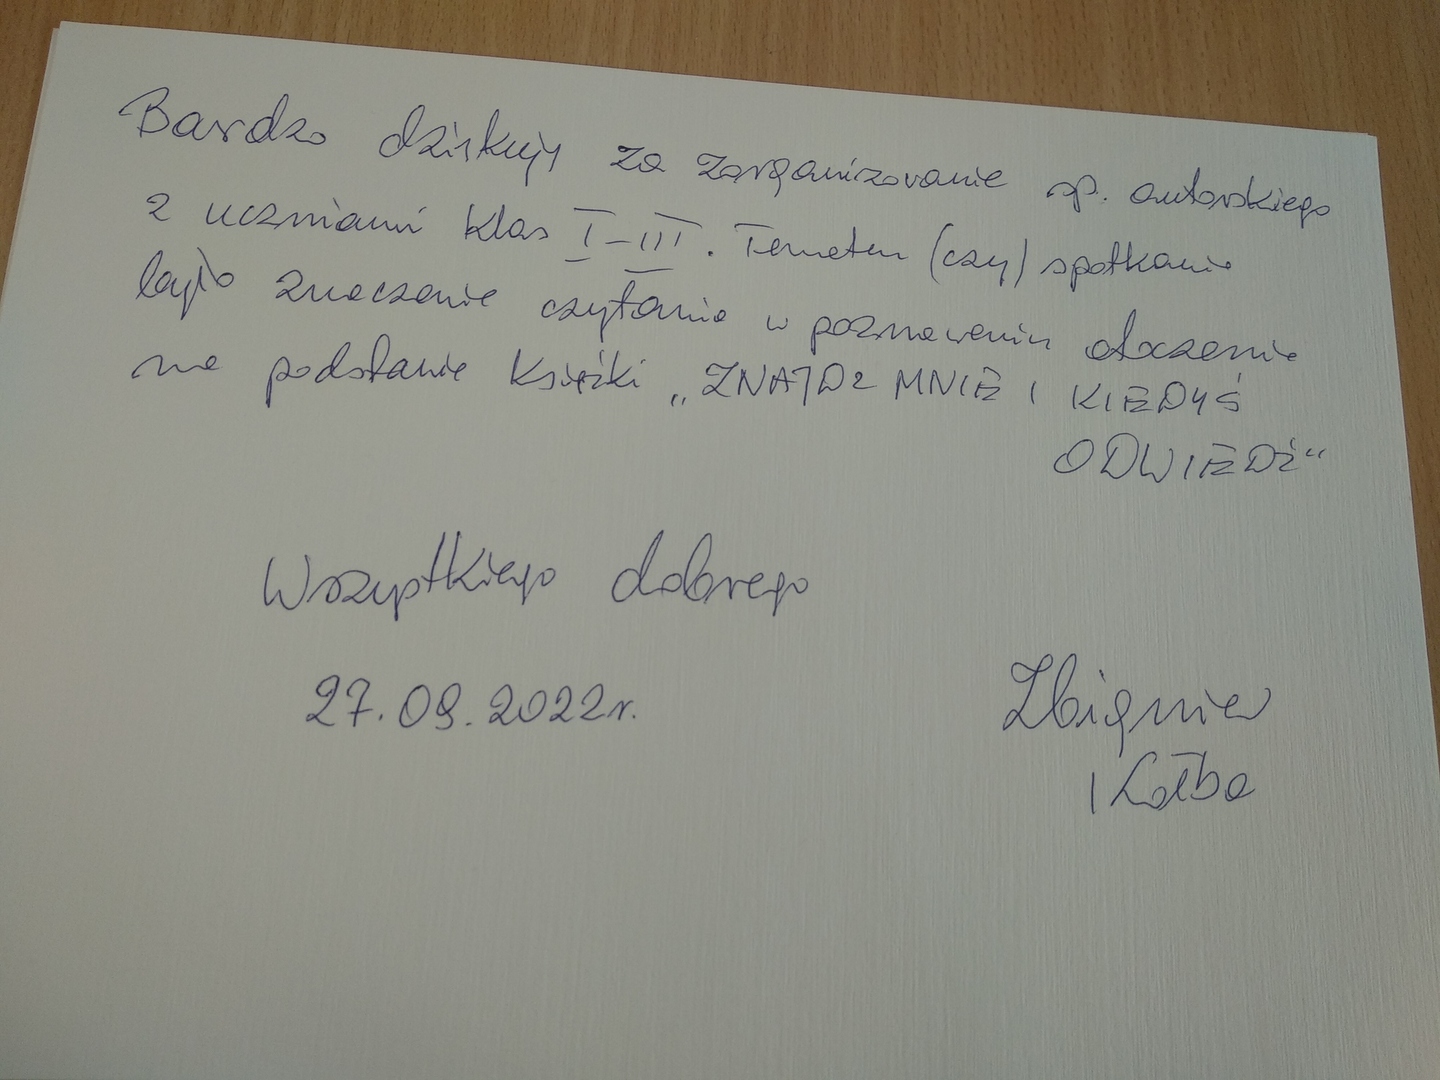 Bardzo dziękuję za zorganizowanie sp. autorskiego
z uczniami klas I-III. Tematem (czy) spotkania
było znaczenie czytania w poznawaniu otoczenia
na podstawie książki „ZNAJDZ MNIE I KIEDYŚ
ODWIEDŹ“
Wszystkiego dobrego
27.09.2022r.
Zbigniew
Kołba